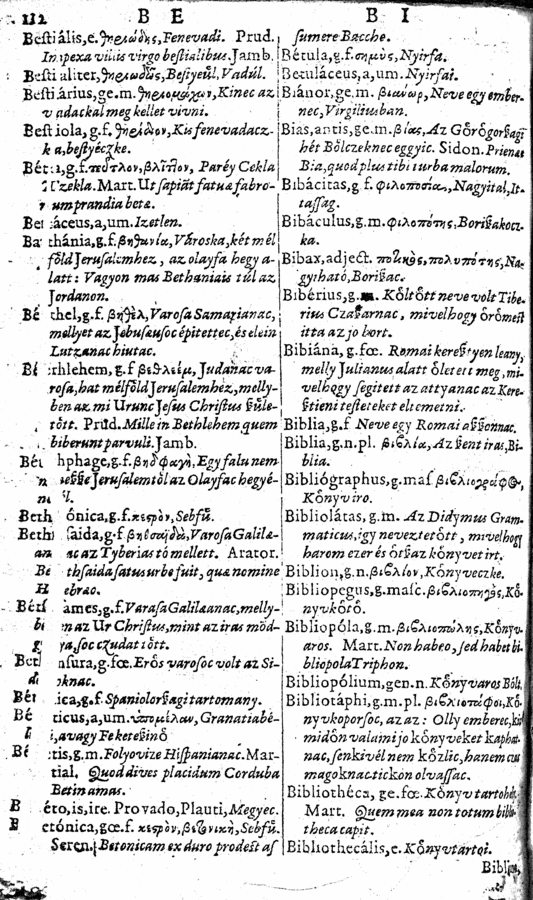 112 B E B I
Beſtiális,e. θηριώδης, Fenevadi. Prud.
Inpexa villis virgo beſtialibus Jamb.
Beſtialiter, θηριωδῶς, Beſtyeül, Vadúl.
Beſtiárius,ge.m. θηριομάχων, Kinec az
vadackal meg kellet vivni.
Beſtiola, g.f. θηρίδιον, Kis fenevadacz-
ka, beſtyéczke.
Béta,g.f. πεῦτλον, βλῖτον, Paréy Cekla
Czekla. Mart. Ut ſapiāt fatuæ fabro-
rum prandia betæ.
Betáceus,a,um. Izetlen.
Bathánia,g.f. βηθανία, Városka, két mél
föld Jeruſalemhez, az olayfa hegy a-
latt: Vagyon mas Bethaniais túl az
Jordanon.
Béthel,g.f. βηθὲλ, Varoſa Samarianac,
mellyet az Jebuſæuſoc épitettec, és elein
Luzanac hiutac.
Béthlehem, g.f βεθλεὲμ, Judànac va-
roſa, hat mélföld Jeruſalemhéz, melly-
ben az mi Urunc Jeſus Chriſtus ſzüle-
tött. Prud. Mille in Bethlehem quem
biberunt parvuli. Jamb.
Béthphage,g.f. βηθφαγὴ, Egy falu nem
meſſze Jeruſalemtöl az Olayfac hegyé-
nél.
Bethónica,g.f. κεςρὸν, Sebfü.
Bethſaida,g.f. βηθσαϊδὰ, Varoſa Galilæ-
anac az Tyberias tó mellett. Arator.
Bethſaida ſatus urbe fuit, quæ nomine
Hebræo.
Bétſames,g.f. Varaſa Galilæanac, melly-
ben az Ur Chriſtus, mint az iras mōd-
gya, ſoc czudat tött.
Betinſura,g.fœ. Erös varoſoc volt az Si-
doknac.
Bética,g.f. Spaniolorſzagi tartomany.
Béticus,a,um. ὑπομέλων, Granatiabé-
li, avagy Fekete ſzinö
Bétis,g.m. Folyovize Hiſpanianac. Mar-
tial. Quod dives placidum Corduba
Betin amas.
Béto,is,ire. Pro vado, Plauti, Megyec.
Betónica,gœ.f. κεςρὸν, βετονικὴ, Sebfü.
Seren. Betonicam ex duro prodeſt aſ
ſumere Bacche.
Bétula,g.f. σημὺς, Nyirfa.
Betuláceus,a,um. Nyirfai.
Biánor,ge.m. βιανὼρ, Neve egy ember-
nec, Virgiliusban.
Bias,antis,ge.m. βίας, Az Görögorſzagi
hét Bölczeknec eggyic. Sidon. Prienæ
Bia, quod plus tibi turba malorum.
Bibácitas, g f. φιλοποσία, Nagyital, It-
taſſag.
Bibáculus,g.m. φιλοπότης, Boriſzakocz-
ka.
Bibax,adject. ποτικὸς, πολυπότης, Na-
gy iható, Boriſzac.
Bibérius,g.m. Költött neve volt Tibe-
rius Czaſzarnac, mivelhogy örömeſt
itta az jo bort.
Bibiána,g.fœ. Romai kereſztyen leany,
melly Julianus alatt öletett meg, mi-
velhogy ſegitett az attyanac az Kere-
ſztieni teſteteket eltemetni.
Biblia,g.f Neve egy Romai aſſzonnac.
Biblia,g.n.pl. βιβλία, Az ſzent iras, Bi-
blia.
Bibliógraphus,g.maſ. βιβλιογράφος,
Könyviro.
Bibliolátas, g.m. Az Didymus Gram-
maticus, igy neveztetött, mivelhogy
harom ezer és ötſzaz könyvet irt.
Biblion,g.n. βιβλίον, Könyveczke.
Bibliopegus,g.maſc. βιβλιοπηγὸς, Kö-
nyvkötö.
Bibliopóla,g.m. βιβλιοπώλης, Könyv-
aros. Mart. Non habeo, ſed habet bi-
bliopola Triphon.
Bibliopólium,gen.n. Könyvaros Bólt.
Bibliotáphi,g.m.pl. βιβλιοτάφοι, Kö-
nyvkoporſoc, az az: Olly emberec, kik
midön valami jo könyveket kaphat-
nac, ſenkivél nem közlic, hanem csak
magoknac tickon olvaſſac.
Bibliothéca, ge.fœ. Könyv tartohely.
Mart. Quem mea non totum biblio-
theca capit.
Bibliothecális,e. Könyvtartoi.
Biblius,